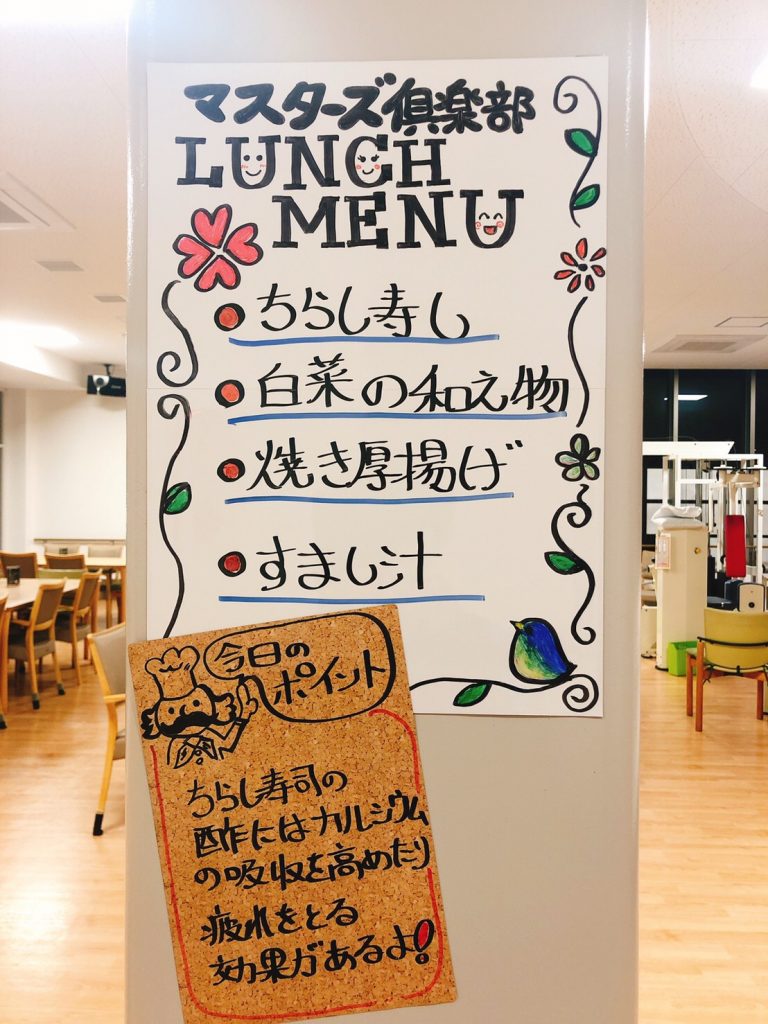 マスターズ倶楽部
LUNCH
MENU
ちらし寿し
白菜の和え物
焼き厚揚げ
すまし汁
今日の
ポイント
ちらし寿司の
酢にはカルシウム
の吸収を高めたり
疲れをとる
効果があるよ!